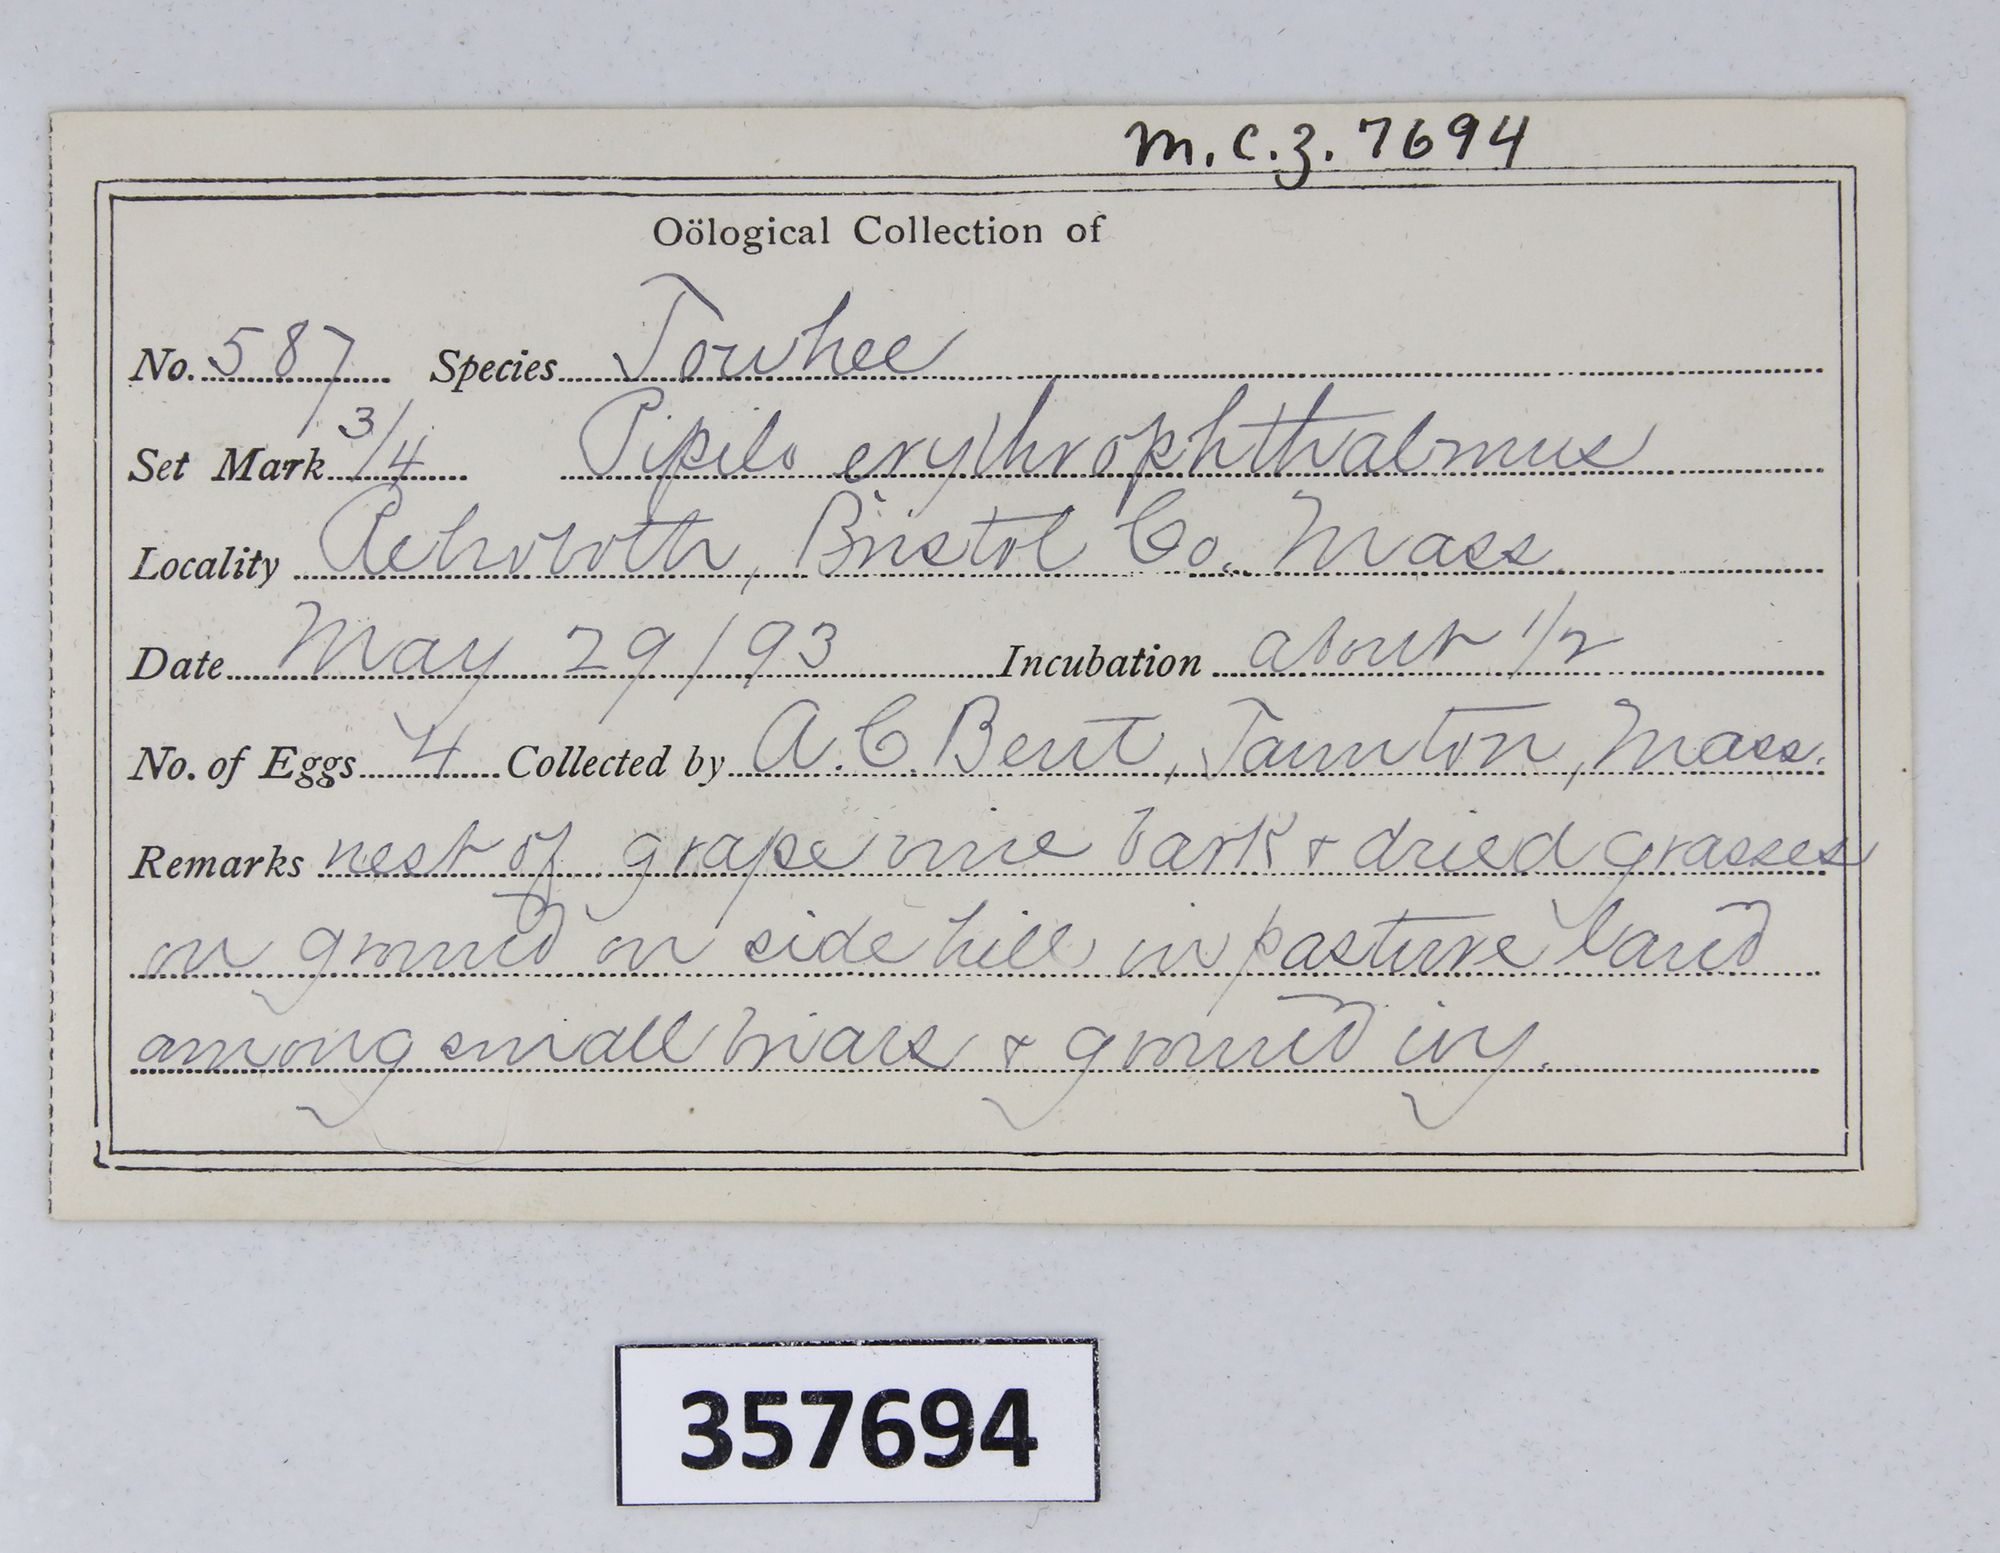 M.C.Z. 7694
Oölogical Collection of
No. 587 Species Towhee
Set Mark 3/4 Pipilo erythrophthalmus
Locality Rehoboth, Bristol Co. Mass.
Date May 29/93 Incubation about 1/2
No. of Eggs 4 Collected by A.C. Bent, Taunton, Mass.
Remarks nest of grape vine bark & dried grasses
on ground on side hill in pasture land
among small briars & ground ivy.
357694